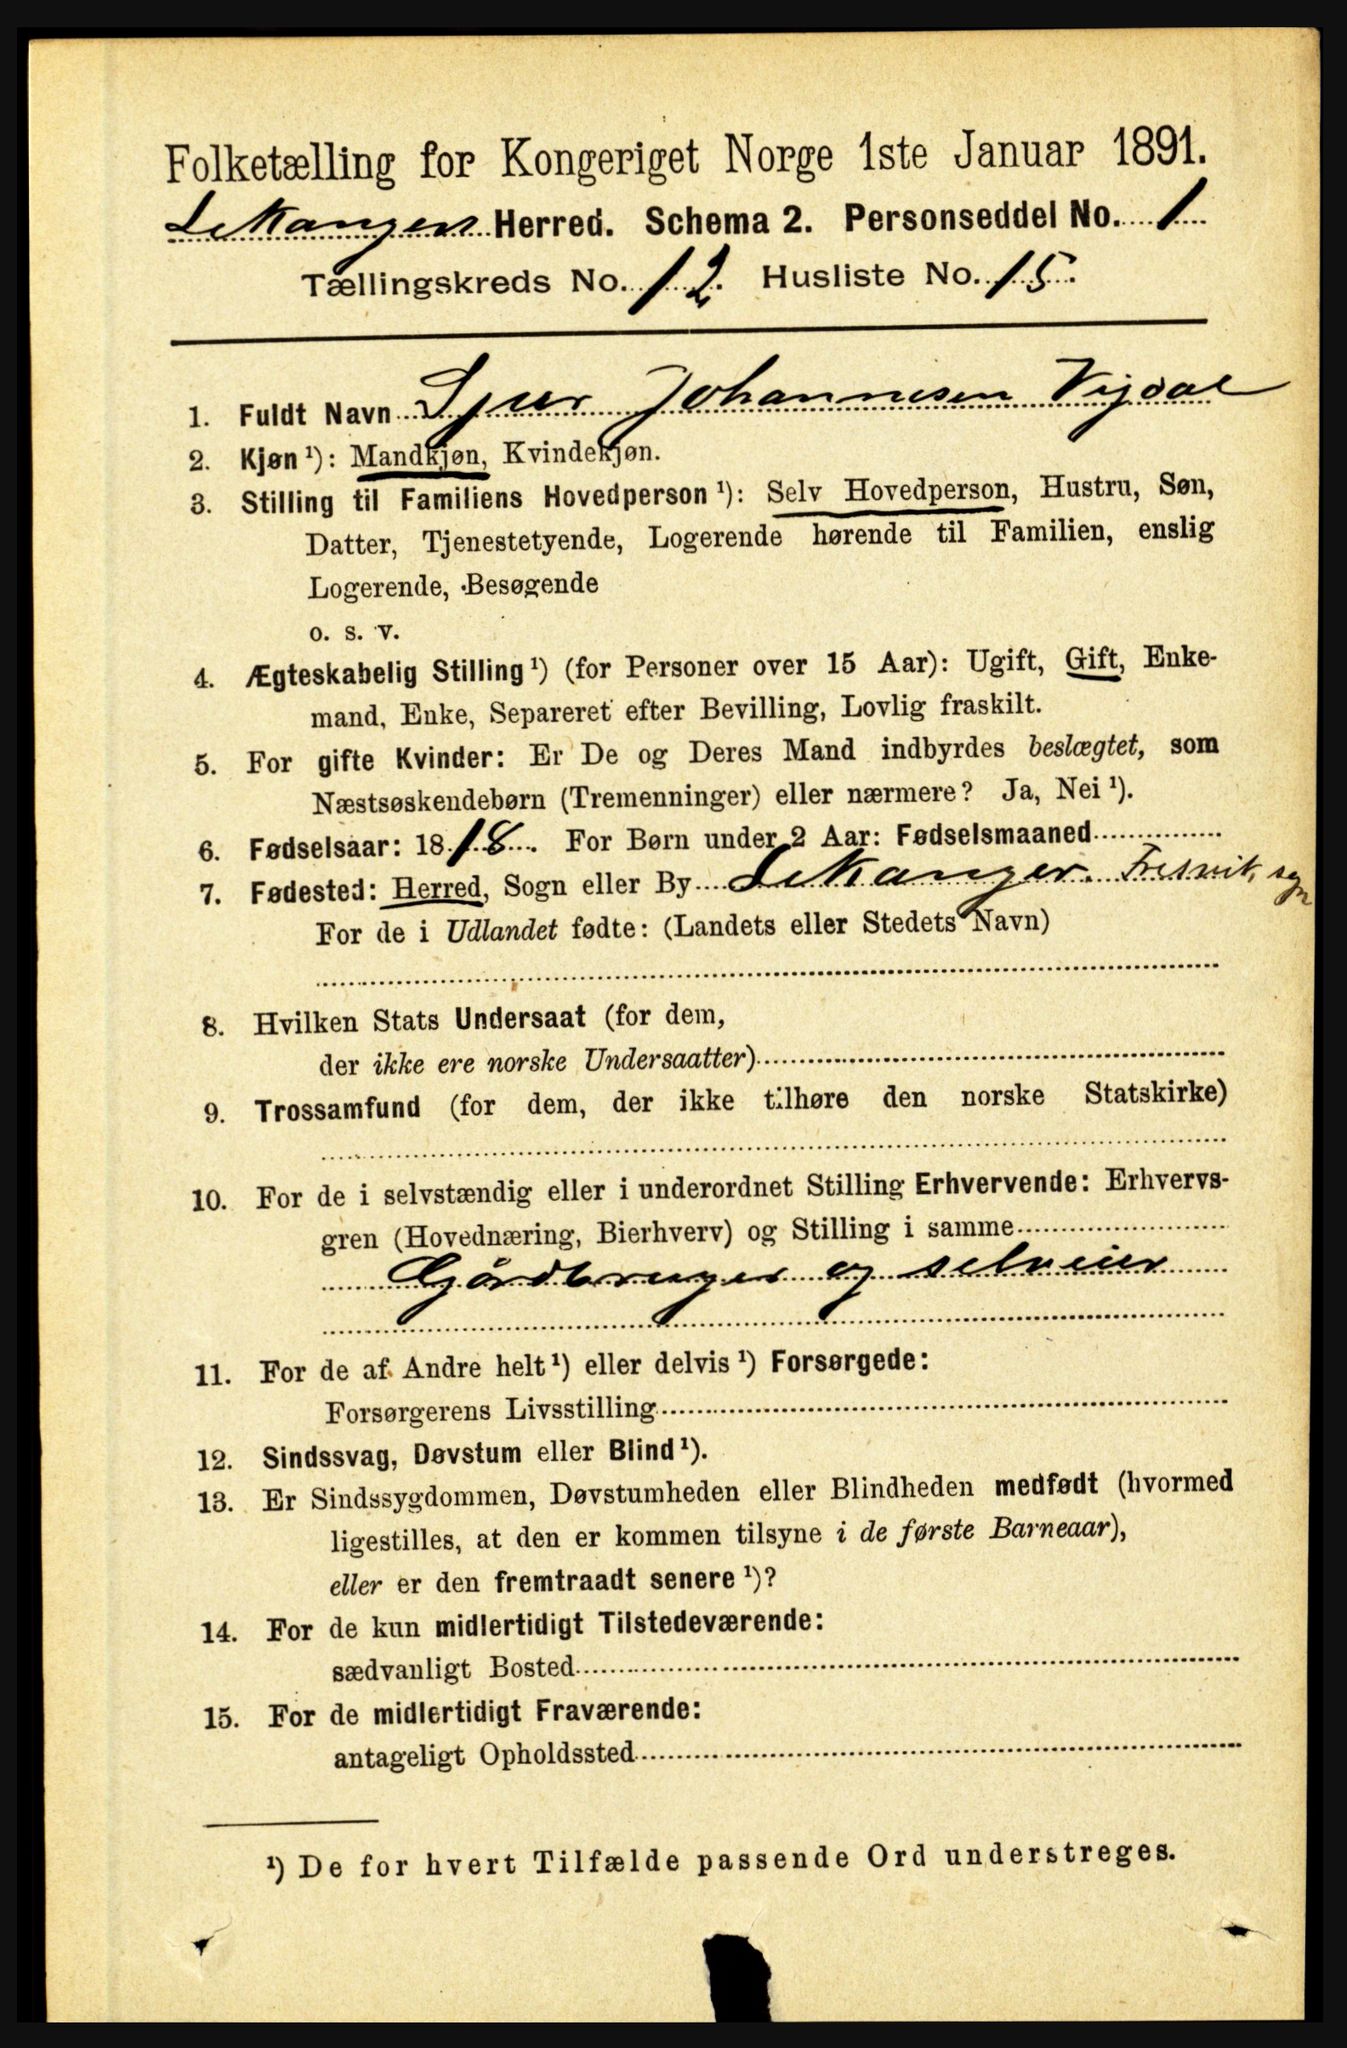 Folketælling for Kongeriget Norge 1ste Januar 1891.
Lekanger Herred. Schema 2. Personseddel No. 1
Tællingskreds No. 12. Husliste No. 15.
1. Fuldt Navn Sjur Johannesen Vigdal
2. Kjøn ¹): Mandkjøn, Kvindekjøn.
3. Stilling til Familiens Hovedperson ¹): Selv Hovedperson, Hustru, Søn,
Datter, Tjenestetyende, Logerende hørende til Familien, enslig
Logerende, Besøgende
o. s. v.
4. Ægteskabelig Stilling ¹) (for Personer over 15 Aar): Ugift, Gift, Enke-
mand, Enke, Separeret efter Bevilling, Lovlig fraskilt.
5. For gifte Kvinder: Er De og Deres Mand indbyrdes beslægtet, som
Næstsøskendebørn (Tremenninger) eller nærmere? Ja, Nei ¹).
6. Fødselsaar: 1818. For Børn under 2 Aar: Fødselsmaaned
7. Fødested: Herred, Sogn eller By Lekanger. Fresvik, sogn
For de i Udlandet fødte: (Landets eller Stedets Navn)
8. Hvilken Stats Undersaat (for dem,
der ikke ere norske Undersaatter)
9. Trossamfund (for dem, der ikke tilhøre den norske Statskirke)
10. For de i selvstændig eller i underordnet Stilling Erhvervende: Erhvervs-
gren (Hovednæring, Bierhverv) og Stilling i samme
Gårdbruger og selveier
11. For de af Andre helt ¹) eller delvis ¹) Forsørgede:
Forsørgerens Livsstilling
12. Sindssvag, Døvstum eller Blind ¹).
13. Er Sindssygdommen, Døvstumheden eller Blindheden medfødt (hvormed
ligestilles, at den er kommen tilsyne i de første Barneaar),
eller er den fremtraadt senere ¹)?
14. For de kun midlertidigt Tilstedeværende:
sædvanligt Bosted
15. For de midlertidigt Fraværende:
antageligt Opholdssted
¹) De for hvert Tilfælde passende Ord understreges.